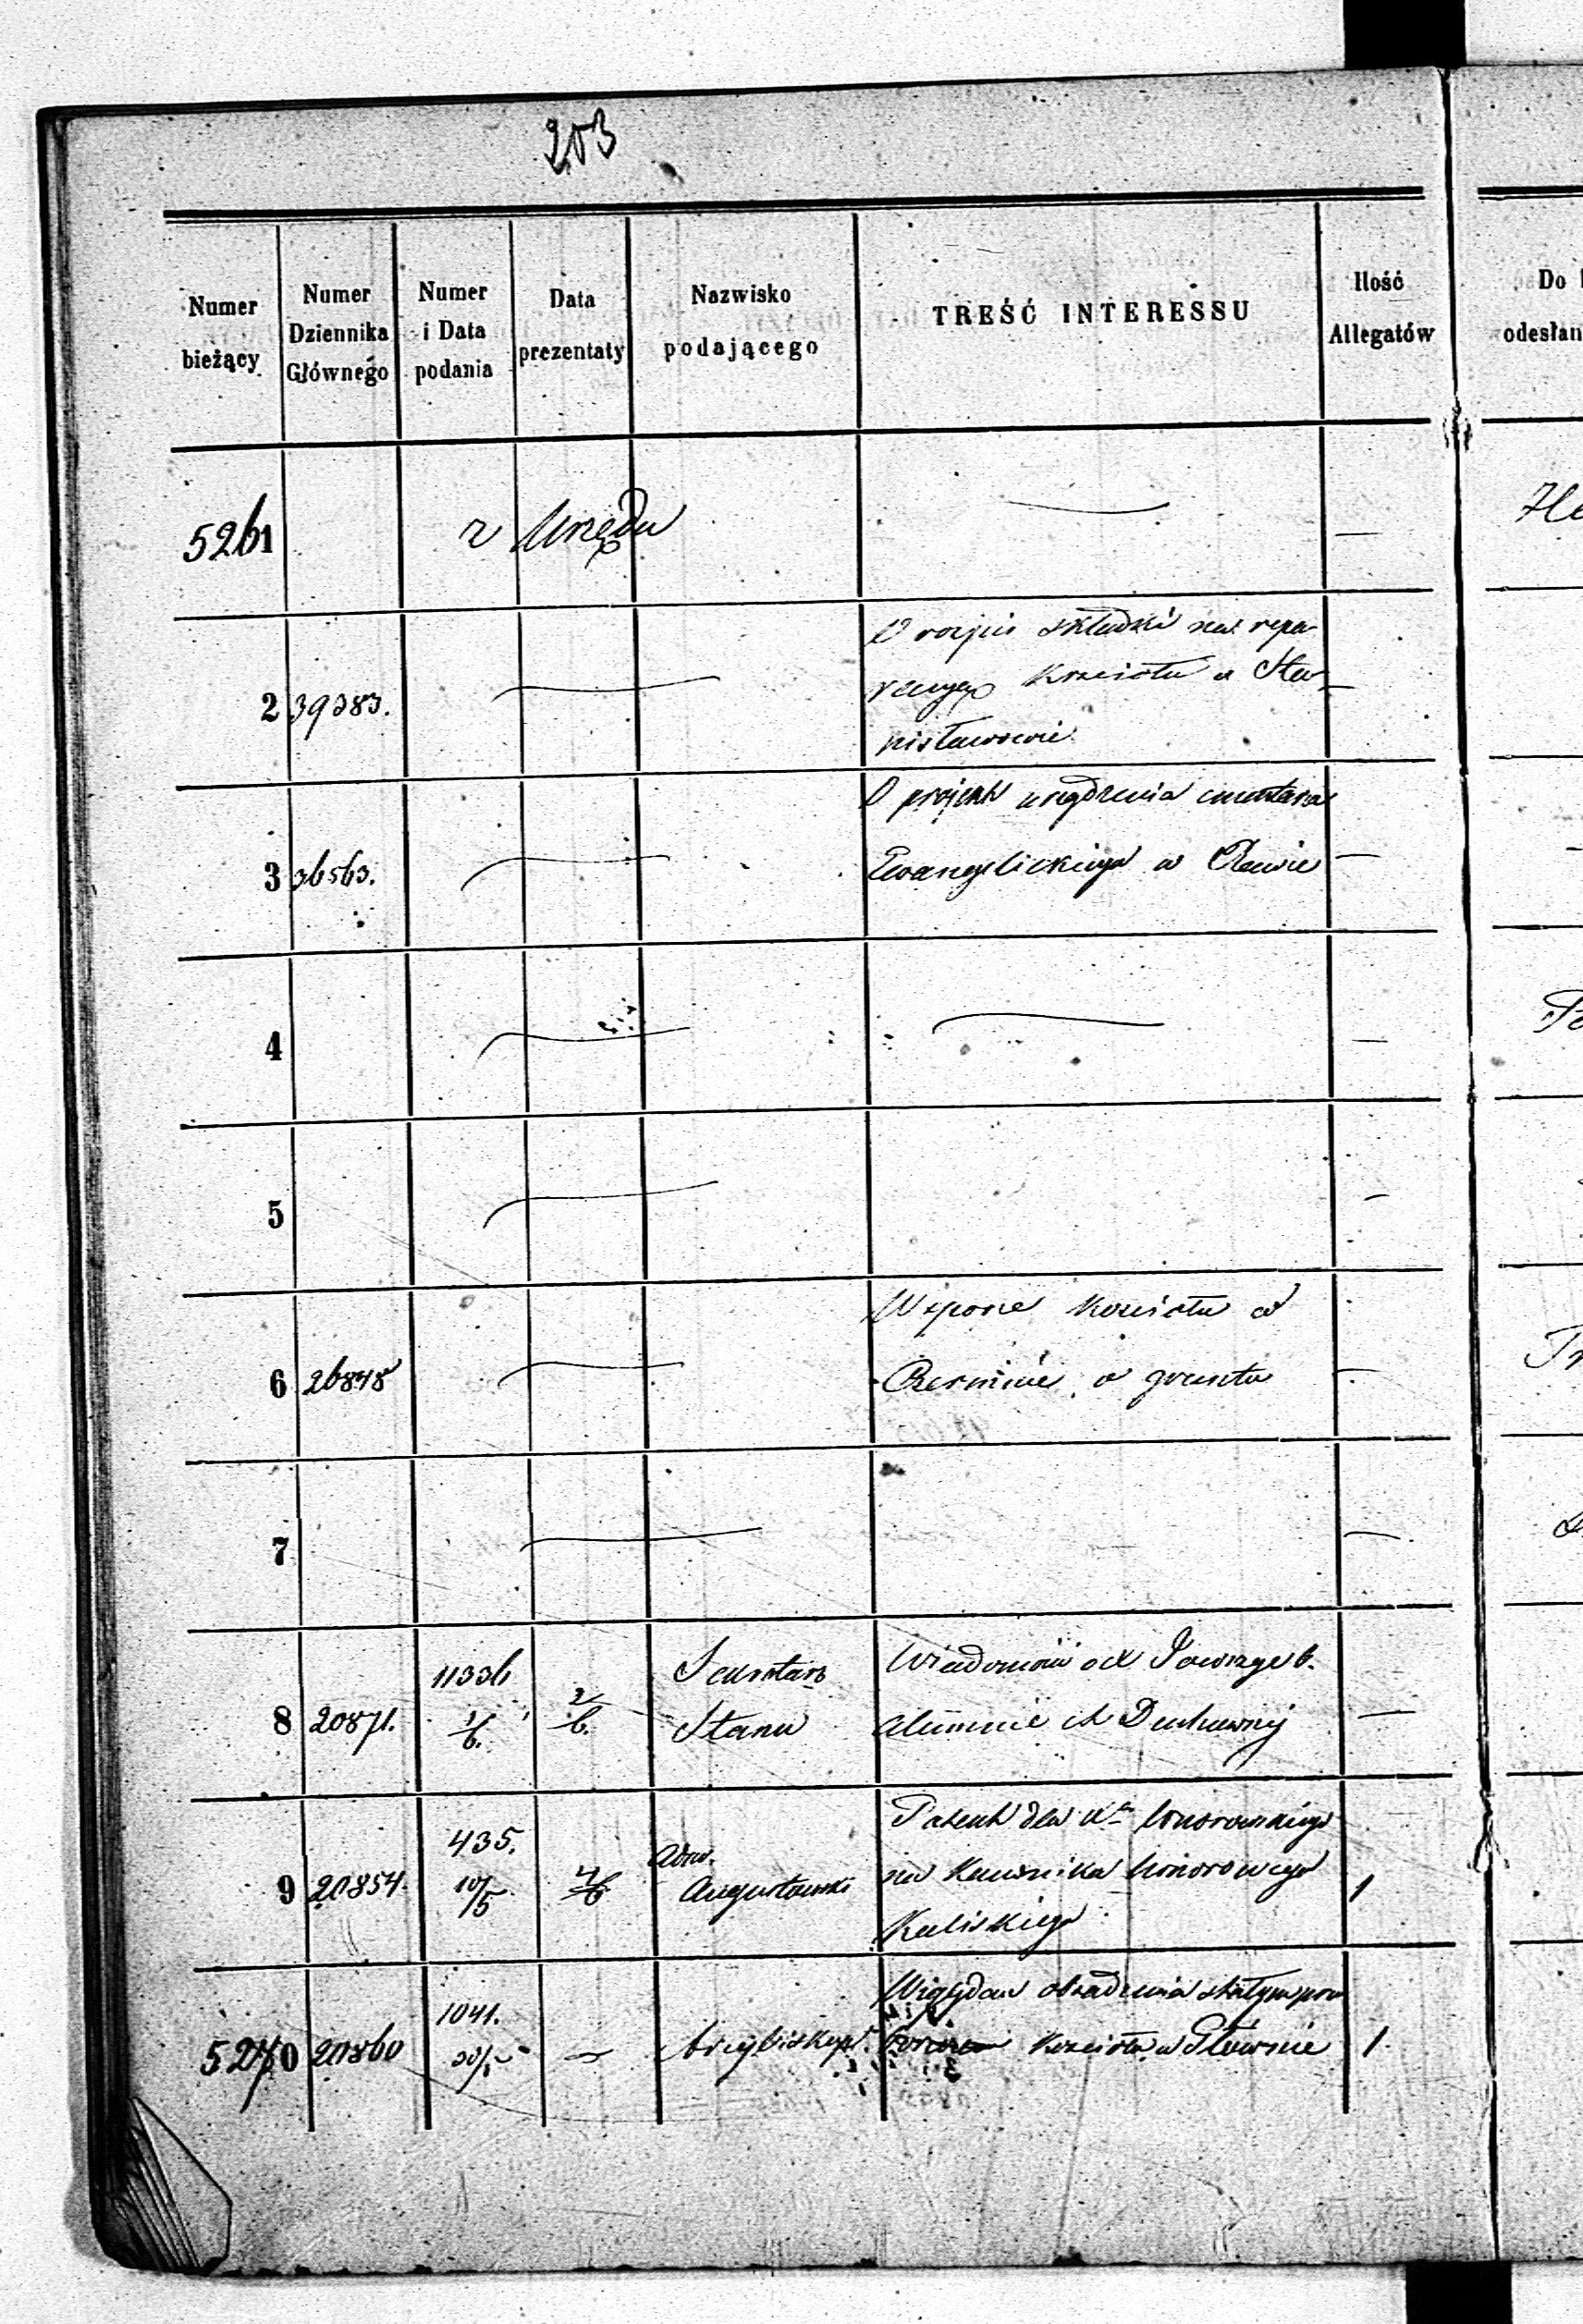 203
Numer bieżący
Numer Dziennika Głównego
Numer i Data podania
Data prezentaty
Nazwisko podającego
TREŚĆ INTERESSU
Ilość Allegatów
Do
odesłan
5261 z Urzędu —
2 39383. O rozpis składki na repa-
racyę Kościoła w Sta-
nisławowie
3 36563. O projekt urządzenia cmentarza
Ewangelickiego w Rawie —
4 —
5 —
6 26848 W sporze Kościoła w
Czerminie o grunta —
7 —
8 20871. 11336 1/6. 2/6. Sekretarz
Stanu
Wiadomość o X
alumnie Duchownej —
9 20854. 435. 10/5 2/6 Adm.
Augustowski
Patent dla Xa
na Kanonika honorowego
Kaliskiego 1
5270 20860 1041. 30/5 — Arcybiskup.
obsadzenia stałym pro
Kościoła w Głownie 1.